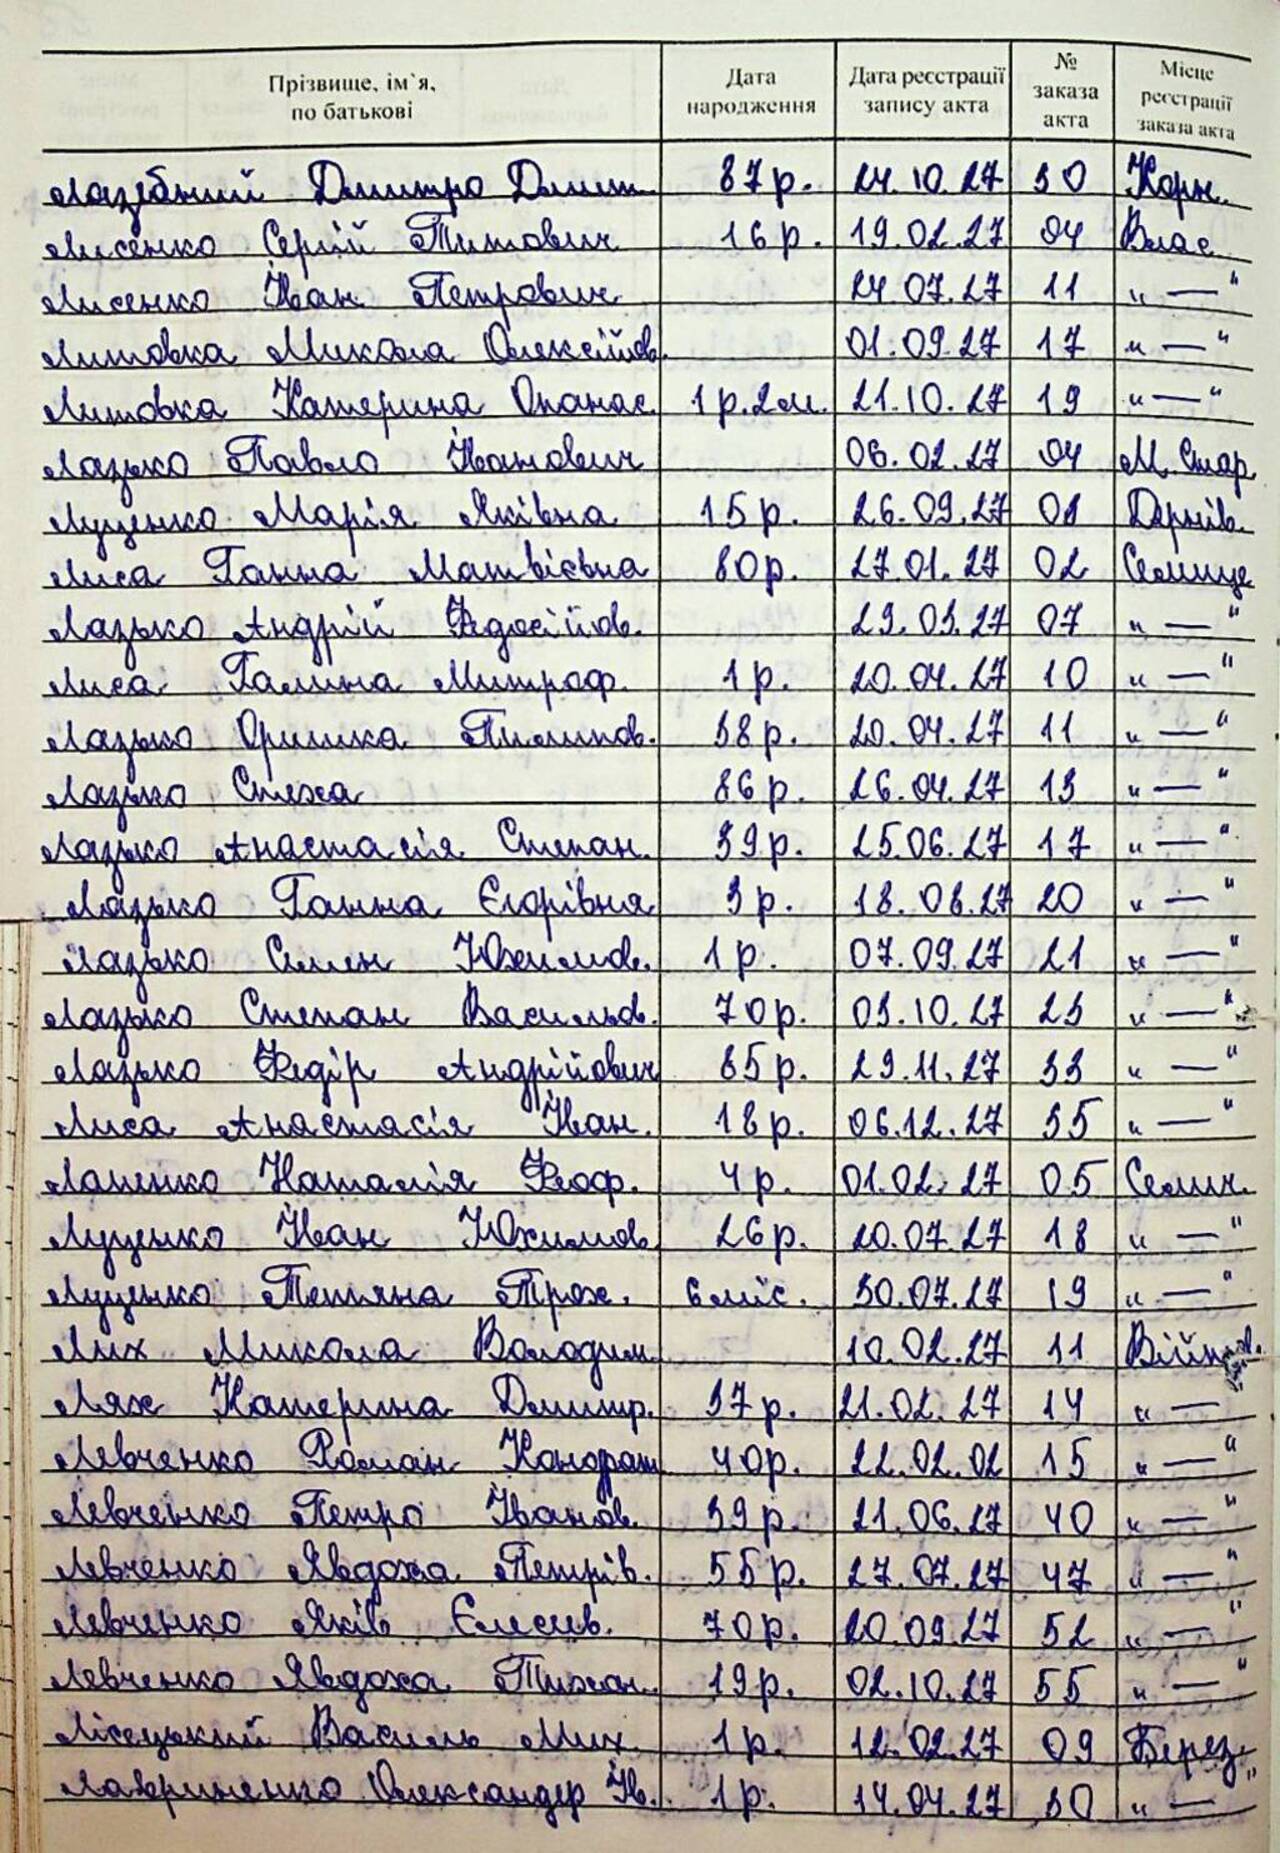 Прізвище, ім`я, по батькові Дата народження Дата реєстрації запису акта № заказа акта Місце реєстрації заказа акта
Лазебний Дмитро Дмит. 87р. 24.10.27 30 Корн.
Лисенко Сергій Титович 16р. 19.02.27 04 Влас.
Лисенко Іван Петрович 24.07.27 11 „ — “
Литовка Микола Олексійов. 01.09.27 17 „ — “
Литовка Катерина Опанас. 1р.2м. 21.10.27 19 „ — “
Лазько Павло Іванович 06.02.27 04 М. Стар.
Луценко Марія Яківна 15р. 26.09.27 01 Дернів.
Лиса Ганна Матвієвна 80р. 27.01.27 02 Селище
Лазько Андрій Федосійов. 29.03.27 07 „ — “
Лиса Галина Митроф. 1р. 20.04.27 10 „ — “
Лазько Оришка Пилипов. 38р. 20.04.27 11 „ — “
Лазько Стеха 86р. 26.04.27 13 „ — “
Лазько Анастасія Степан. 39р. 25.06.27 17 „ — “
Лазько Ганна Єгорівна 3р. 18.08.27 20 „ — “
Лазько Семен Юхимов. 1р. 07.09.27 21 „ — “
Лазько Степан Васильов. 70р. 03.10.27 23 „ — “
Лазько Федір Андрійович 85р. 29.11.27 33 „ — “
Лиса Анастасія Іван. 18р. 06.12.27 35 „ — “
Лапенко Наталія Феоф. 4р. 01.02.27 05 Селич.
Луценко Іван Юхимов. 26р. 20.07.27 18 „ — “
Луценко Тетяна Трох. 6міс. 30.07.27 19 „ — “
Лих Микола Володим. 10.02.27 11 Війтов.
Лях Катерина Дмитр. 37р. 21.02.27 14 „ — “
Левченко Роман Кондрат. 40р. 22.02.02 15 „ — “
Левченко Петро Іванов. 39р. 21.06.27 40 „ — “
Левченко Явдоха Петрів. 55р. 27.07.27 47 „ — “
Левченко Яків Єлесив. 70р. 20.09.27 52 „ — “
Левченко Явдоха Тихон. 19р. 02.10.27 55 „ — “
Лісецький Василь Мих. 1р. 12.02.27 09 Берез.
Лавриненко Олександер Ів. 1р. 14.04.27 30 „ — “